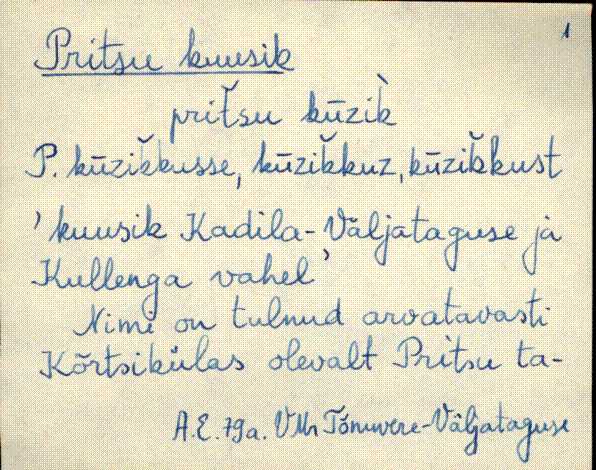 1
Pritsu kuusik
prit̆su kūzìk
P. kūzik̆kusse, kūzik̆kuz, kūzik̆kust
'kuusik Kadila-Väljataguse ja
Kullenga vahel'
Nimi on tulnud arvatavasti
Kõrtsikülas olevalt Pritsu ta-
A.E. 79a. VMr Tõnuvere-Väljataguse